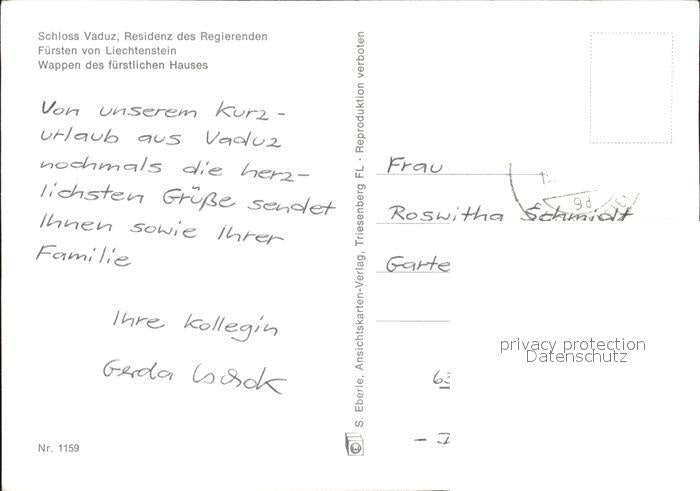 Schloss Vaduz, Residenz des Regierenden
Fürsten von Liechtenstein
Wappen des fürstlichen Hauses
Von unserem Kurz-
urlaub aus Vaduz
nochmals die herz-
lichsten Grüße sendet
Ihnen sowie Ihrer
Familie
Ihre Kollegin
Gerda
Nr. 1159
S. Eberle, Ansichtskarten-Verlag, Triesenberg FL · Reproduktion verboten
Frau
Roswitha Schmidt
Garte
privacy protection
Datenschutz
63